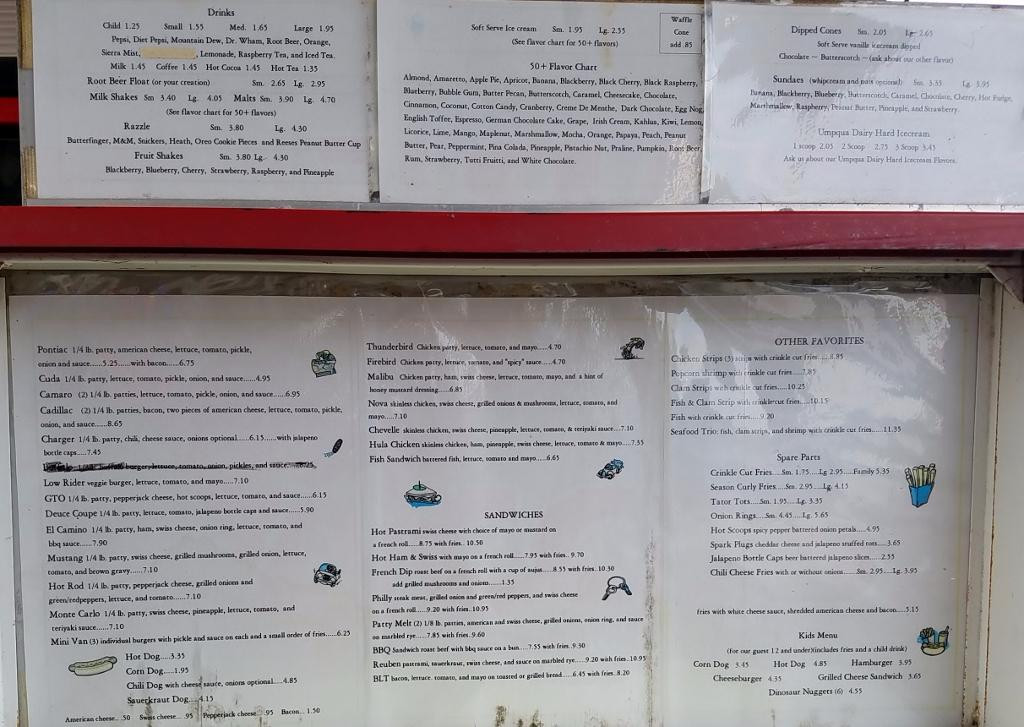 Drinks
Child 1.25 Small 1.55 Med. 1.65 Large 1.95
Pepsi, Diet Pepsi, Mountain Dew, Dr. Wham, Root Beer, Orange,
Sierra Mist, Lemonade, Raspberry Tea, and Iced Tea.
Milk 1.45 Coffee 1.45 Hot Cocoa 1.45 Hot Tea 1.35
Root Beer Float (or your creation) Sm. 2.65 Lg. 2.95
Milk Shakes Sm 3.40 Lg. 4.05 Malts Sm. 3.90 Lg. 4.70
(See flavor chart for 50+ flavors)
Razzle Sm. 3.80 Lg. 4.30
Butterfinger, M&M, Snickers, Heath, Oreo Cookie Pieces and Reeses Peanut Butter Cup
Fruit Shakes Sm. 3.80 Lg. 4.30
Blackberry, Blueberry, Cherry, Strawberry, Raspberry, and Pineapple
Soft Serve Ice cream Sm. 1.95 Lg. 2.55
(See flavor chart for 50+ flavors)
Waffle
Cone
add .85
50+ Flavor Chart
Almond, Amaretto, Apple Pie, Apricot, Banana, Blackberry, Black Cherry, Black Raspberry,
Blueberry, Bubble Gum, Butter Pecan, Butterscotch, Caramel, Cheesecake, Chocolate,
Cinnamon, Coconut, Cotton Candy, Cranberry, Creme De Menthe, Dark Chocolate, Egg Nog,
English Toffee, Espresso, German Chocolate Cake, Grape, Irish Cream, Kahlua, Kiwi, Lemon,
Licorice, Lime, Mango, Maplenut, Marshmallow, Mocha, Orange, Papaya, Peach, Peanut
Butter, Pear, Peppermint, Pina Colada, Pineapple, Pistachio Nut, Praline, Pumpkin, Root Beer
Rum, Strawberry, Tutti Fruitti, and White Chocolate.
Dipped Cones Sm. 2.05 Lg. 2.65
Soft Serve vanilla icecream dipped
Chocolate ~ Butterscotch ~ (ask about our other flavor)
Sundaes (whipcream and nuts optional) Sm. 3.35 Lg. 3.95
Banana, Blackberry, Blueberry, Butterscotch, Caramel, Chocolate, Cherry, Hot Fudge,
Marshmallow, Raspberry, Peanut Butter, Pineapple, and Strawberry.
Umpqua Dairy Hard Icecream
1 scoop 2.05 2 Scoop 2.75 3 Scoop 3.45
Ask us about our Umpqua Dairy Hard Icecream Flavors.
Pontiac 1/4 lb. patty, american cheese, lettuce, tomato, pickle,
onion and sauce.....5.25......with bacon.....6.75
Cuda 1/4 lb. patty, lettuce, tomato, pickle, onion, and sauce......4.95
Camaro (2) 1/4 lb. patties, lettuce, tomato, pickle, onion, and sauce......6.95
Cadillac (2) 1/4 lb. patties, bacon, two pieces of american cheese, lettuce, tomato, pickle,
onion, and sauce.....8.65
Charger 1/4 lb. patty, chili, cheese sauce, onions optional.....6.15......with jalapeno
bottle caps.....7.45
burger, lettuce, tomato, onion, pickles, and sauce
Low Rider veggie burger, lettuce, tomato, and mayo.....7.10
GTO 1/4 lb. patty, pepperjack cheese, hot scoops, lettuce, tomato, and sauce.....6.15
Deuce Coupe 1/4 lb. patty, lettuce, tomato, jalapeno bottle caps and sauce.....5.90
El Camino 1/4 lb. patty, ham, swiss cheese, onion ring, lettuce, tomato, and
bbq sauce.....7.90
Mustang 1/4 lb. patty, swiss cheese, grilled mushrooms, grilled onion, lettuce,
tomato, and brown gravy.....7.10
Hot Rod 1/4 lb. patty, pepperjack cheese, grilled onions and
green/redpeppers, lettuce, and tomato......7.10
Monte Carlo 1/4 lb. patty, swiss cheese, pineapple, lettuce, tomato, and
teriyaki sauce.....7.10
Mini Van (3) individual burgers with pickle and sauce on each and a small order of fries.....6.25
Hot Dog.....3.35
Corn Dog.....1.95
Chili Dog with cheese sauce, onions optional.....4.85
Sauerkraut Dog....4.15
American cheese.. .50 Swiss cheese... .95 Pepperjack cheese .95 Bacon... 1.50
Thunderbird Chicken patty, lettuce, tomato, and mayo.....4.70
Firebird Chicken patty, lettuce, tomato, and "spicy" sauce.....4.70
Malibu Chicken patty, ham, swiss cheese, lettuce, tomato, mayo, and a hint of
honey mustard dressing.....6.85
Nova skinless chicken, swiss cheese, grilled onions & mushrooms, lettuce, tomato, and
mayo.....7.10
Chevelle skinless chicken, swiss cheese, pineapple, lettuce, tomato, & teriyaki sauce....7.10
Hula Chicken skinless chicken, ham, pineapple, swiss cheese, lettuce, tomato & mayo.....7.35
Fish Sandwich battered fish, lettuce, tomato and mayo.....6.65
SANDWICHES
Hot Pastrami swiss cheese with choice of mayo or mustard on
a french roll.....8.75 with fries.. 10.50
Hot Ham & Swiss with mayo on a french roll......7.95 with fries.. 9.70
French Dip roast beef on a french roll with a cup of aujus.....8.55 with fries..10.30
add grilled mushrooms and onions......1.35
Philly steak meat, grilled onion and green/red peppers, and swiss cheese
on a french roll.....9.20 with fries..10.95
Patty Melt (2) 1/8 lb. patties, american and swiss cheese, grilled onions, onion ring, and sauce
on marbled rye.....7.85 with fries..9.60
BBQ Sandwich roast beef with bbq sauce on a bun.....7.55 with fries..9.30
Reuben pastrami, sauerkraut, swiss cheese, and sauce on marbled rye.....9.20 with fries..10.95
BLT bacon, lettuce, tomato, and mayo on toasted or grilled bread.....6.45 with fries...8.20
OTHER FAVORITES
Chicken Strips (3) strips with crinkle cut fries.....8.85
Popcorn shrimp with crinkle cut fries.....7.85
Clam Strips with crinkle cut fries.....10.25
Fish & Clam Strip with crinkle cut fries.....10.15
Fish with crinkle cut fries.....9.20
Seafood Trio: fish, clam strips, and shrimp with crinkle cut fries.....11.35
Spare Parts
Crinkle Cut Fries....Sm. 1.75....Lg 2.95.....Family 5.35
Season Curly Fries....Sm. 2.95....Lg. 4.15
Tator Tots.....Sm. 1.95....Lg. 3.35
Onion Rings....Sm. 4.45....Lg. 5.65
Hot Scoops spicy pepper battered onion petals.....4.95
Spark Plugs cheddar cheese and jalapeno stuffed tots.....3.65
Jalapeno Bottle Caps beer battered jalapeno slices.....2.55
Chili Cheese Fries with or without onions.....Sm. 2.95....Lg. 3.95
fries with white cheese sauce, shredded american cheese and bacon.....5.15
Kids Menu
(for our guest 12 and under)(includes fries and a child drink)
Corn Dog 3.45 Hot Dog 4.85 Hamburger 3.95
Cheeseburger 4.35 Grilled Cheese Sandwich 3.65
Dinosaur Nuggets (6) 4.55